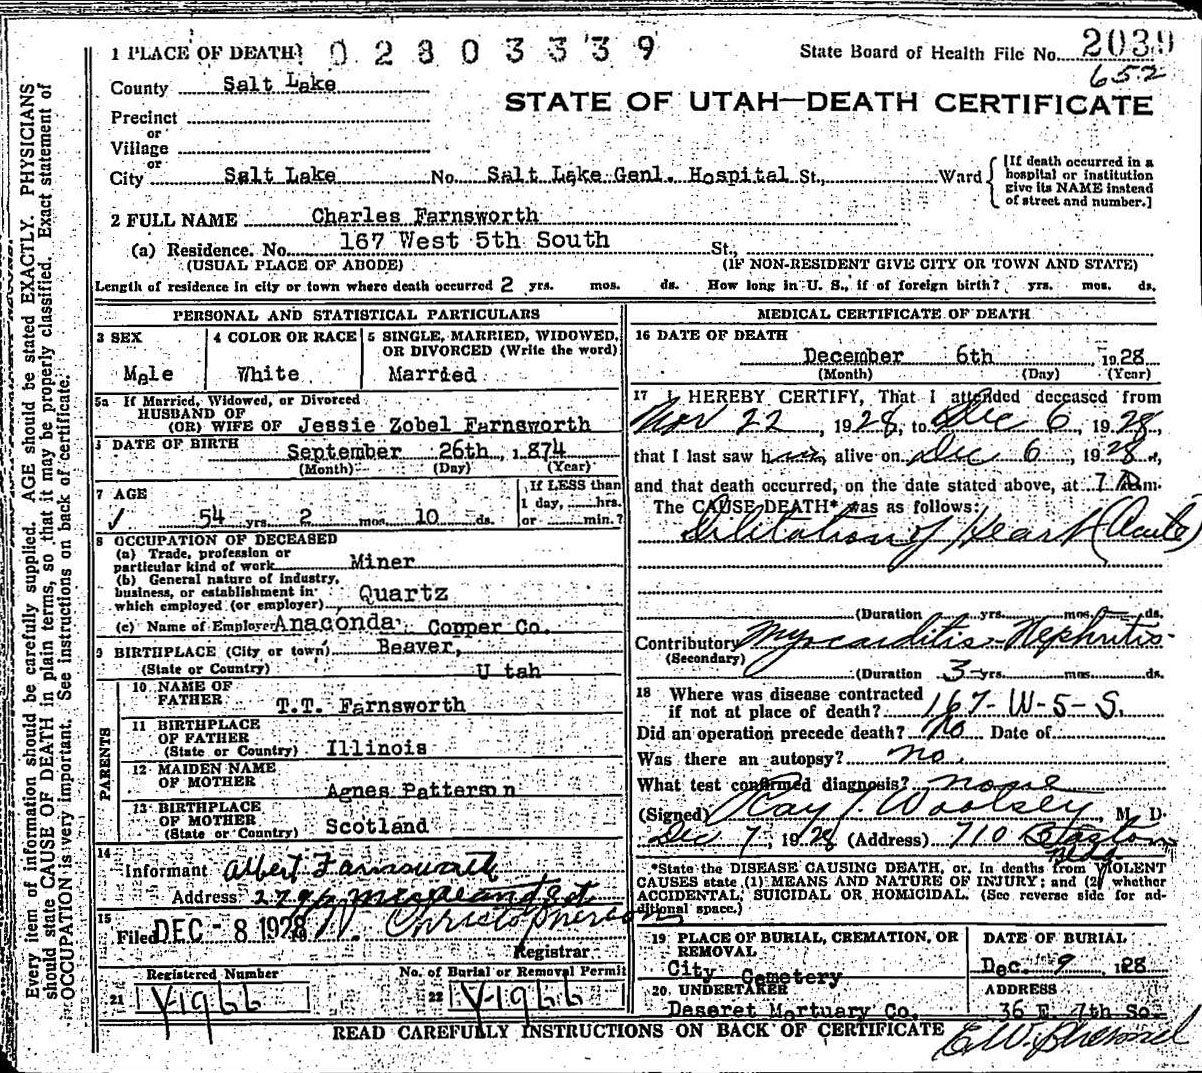 1 PLACE OF DEATH 02803339 State Board of Health File No. 2039
652
County Salt Lake
STATE OF UTAH—DEATH CERTIFICATE
Precinct
or
Village
or
City Salt Lake No. Salt Lake Genl. Hospital St., Ward {[If death occurred in a hospital or institution give its NAME instead of street and number.]
2 FULL NAME Charles Farnsworth
(a) Residence. No. 167 West 5th South St.,
(USUAL PLACE OF ABODE) (IF NON-RESIDENT GIVE CITY OR TOWN AND STATE)
Length of residence in city or town where death occurred 2 yrs. mos. ds. How long in U. S., if of foreign birth? yrs. mos. ds.
PERSONAL AND STATISTICAL PARTICULARS
3 SEX 4 COLOR OR RACE 5 SINGLE, MARRIED, WIDOWED, OR DIVORCED (Write the word)
Male White Married
5a If Married, Widowed, or Divorced
HUSBAND OF
(OR) WIFE OF Jessie Zobel Farnsworth
DATE OF BIRTH
September 26th, 1874
(Month) (Day) (Year)
7 AGE If LESS than
1 day, hrs.
54 yrs. 2 mos. 10 ds. or min.?
8 OCCUPATION OF DECEASED
(a) Trade, profession or
particular kind of work Miner
(b) General nature of industry,
business, or establishment in
which employed (or employer) Quartz
(c) Name of Employer Anaconda Copper Co.
9 BIRTHPLACE (City or town) Beaver,
(State or Country) Utah
PARENTS
10 NAME OF
FATHER T.T. Farnsworth
11 BIRTHPLACE
OF FATHER
(State or Country) Illinois
12 MAIDEN NAME
OF MOTHER Agnes Patterson
13 BIRTHPLACE
OF MOTHER
(State or Country) Scotland
14
Informant Albert Farnsworth
Address
15
Filed DEC - 8 1928 Christopherson
Registrar
Registered Number No. of Burial or Removal Permit
21 Y-1966 22 Y-1966
MEDICAL CERTIFICATE OF DEATH
16 DATE OF DEATH
December 6th 1928
(Month) (Day) (Year)
17 I HEREBY CERTIFY, That I attended deceased from
Nov 22, 1928, to Dec 6, 1928,
that I last saw him alive on Dec 6, 1928,
and that death occurred, on the date stated above, at 7 A.m.
The CAUSE DEATH* was as follows:
Dilitation of Heart (Acute)
(Duration yrs. mos. ds.
Contributory Myocarditis - Nephritis
(Secondary)
(Duration 3 yrs. mos. ds.
18 Where was disease contracted
if not at place of death? 167-W-5-S.
Did an operation precede death? No Date of
Was there an autopsy? no.
What test confirmed diagnosis? none
(Signed) Ray J. Woolsey, M. D.
Dec 7, 1928 (Address) 710
*State the DISEASE CAUSING DEATH, or, in deaths from VIOLENT
CAUSES state (1) MEANS AND NATURE OF INJURY; and (2) whether
ACCIDENTAL, SUICIDAL OR HOMICIDAL. (See reverse side for additional space.)
19 PLACE OF BURIAL, CREMATION, OR REMOVAL DATE OF BURIAL
City Cemetery Dec. 9 1928
20 UNDERTAKER ADDRESS
Deseret Mortuary Co. 36 E. 7th So.
READ CAREFULLY INSTRUCTIONS ON BACK OF CERTIFICATE
Every item of information should be carefully supplied. AGE should be stated EXACTLY. PHYSICIANS
should state CAUSE OF DEATH in plain terms, so that it may be properly classified. Exact statement of
OCCUPATION is very important. See instructions on back of certificate.